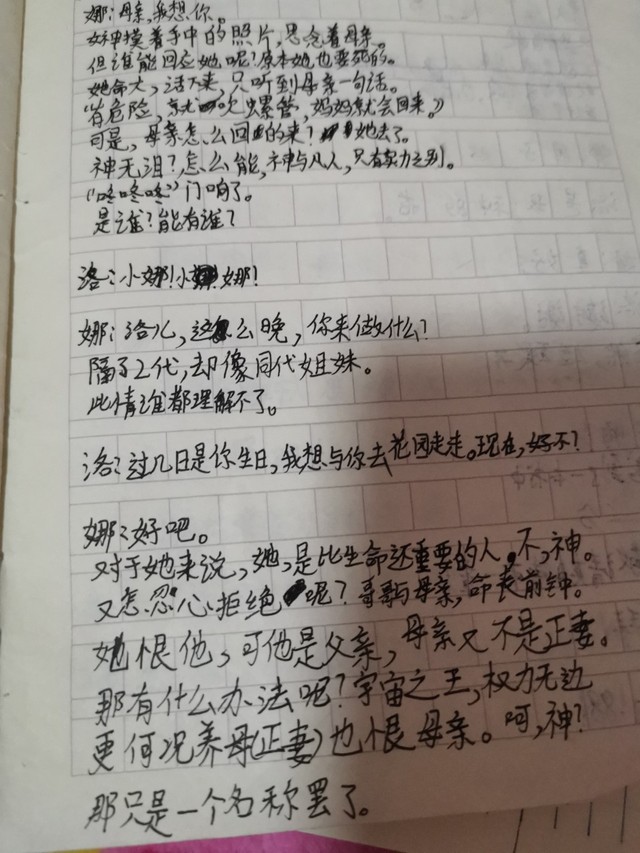 娜:母亲,我想你。
女神摸着手中的照片,思念着母亲。
但谁能回应她呢?原本她也要死的。
她命大,活下来,只听到母亲一句话。
(有危险,就吹螺管,妈妈就会回来。)
可是,母亲怎么回的来?她去了。
神无泪?怎么能,神与凡人,只有实力之别。
(“咚咚咚”)门响了。
是谁?能有谁?
洛:小娜!小娜!
娜:洛儿,这么晚,你来做什么?
隔了2代,却像同代姐妹。
此情谁都理解不了。
洛:过几日是你生日,我想与你去花园走走。现在,好不?
娜:好吧。
对于她来说,她,是比生命还重要的人。不,神。
又怎忍心拒绝呢?哥哥与母亲,命丧前钟。
她恨他,可他是父亲,母亲又不是正妻。
那有什么办法呢?宇宙之王,权力无边
更何况养母(正妻)也恨母亲。呵,神?
那只是一个名称罢了。